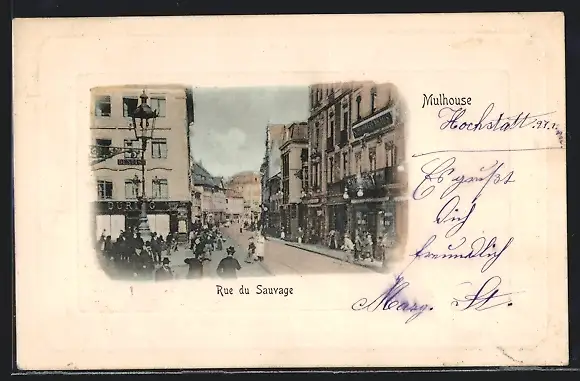 Mulhouse
Hochstatt
Es grüßt
Dich
freundlich
Marg. St.
Rue du Sauvage